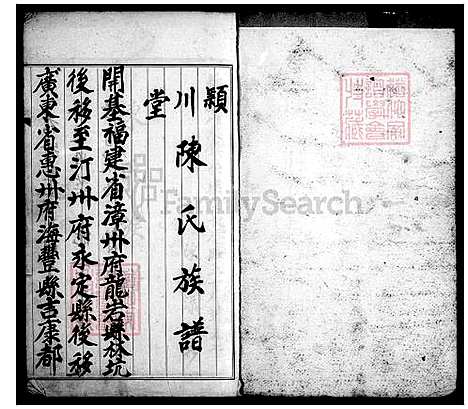 潁川堂
陳氏族譜
開基福建省漳州府龍岩縣林坑
後移至汀州府永定縣後移
廣東省惠州府海豐縣吉康都
FamilySearch